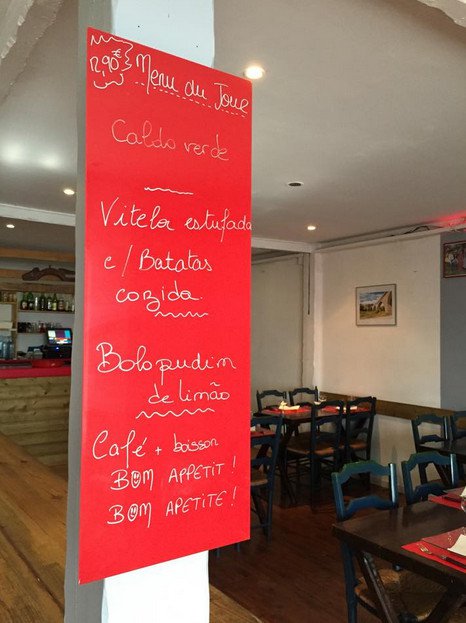 12,90€ Menu du Jour
Caldo verde
Vitela estufada
c/Batatas
cozida
Bolo pudim
de limão
Café + boisson
BOM APPETIT !
BOM APETITE !